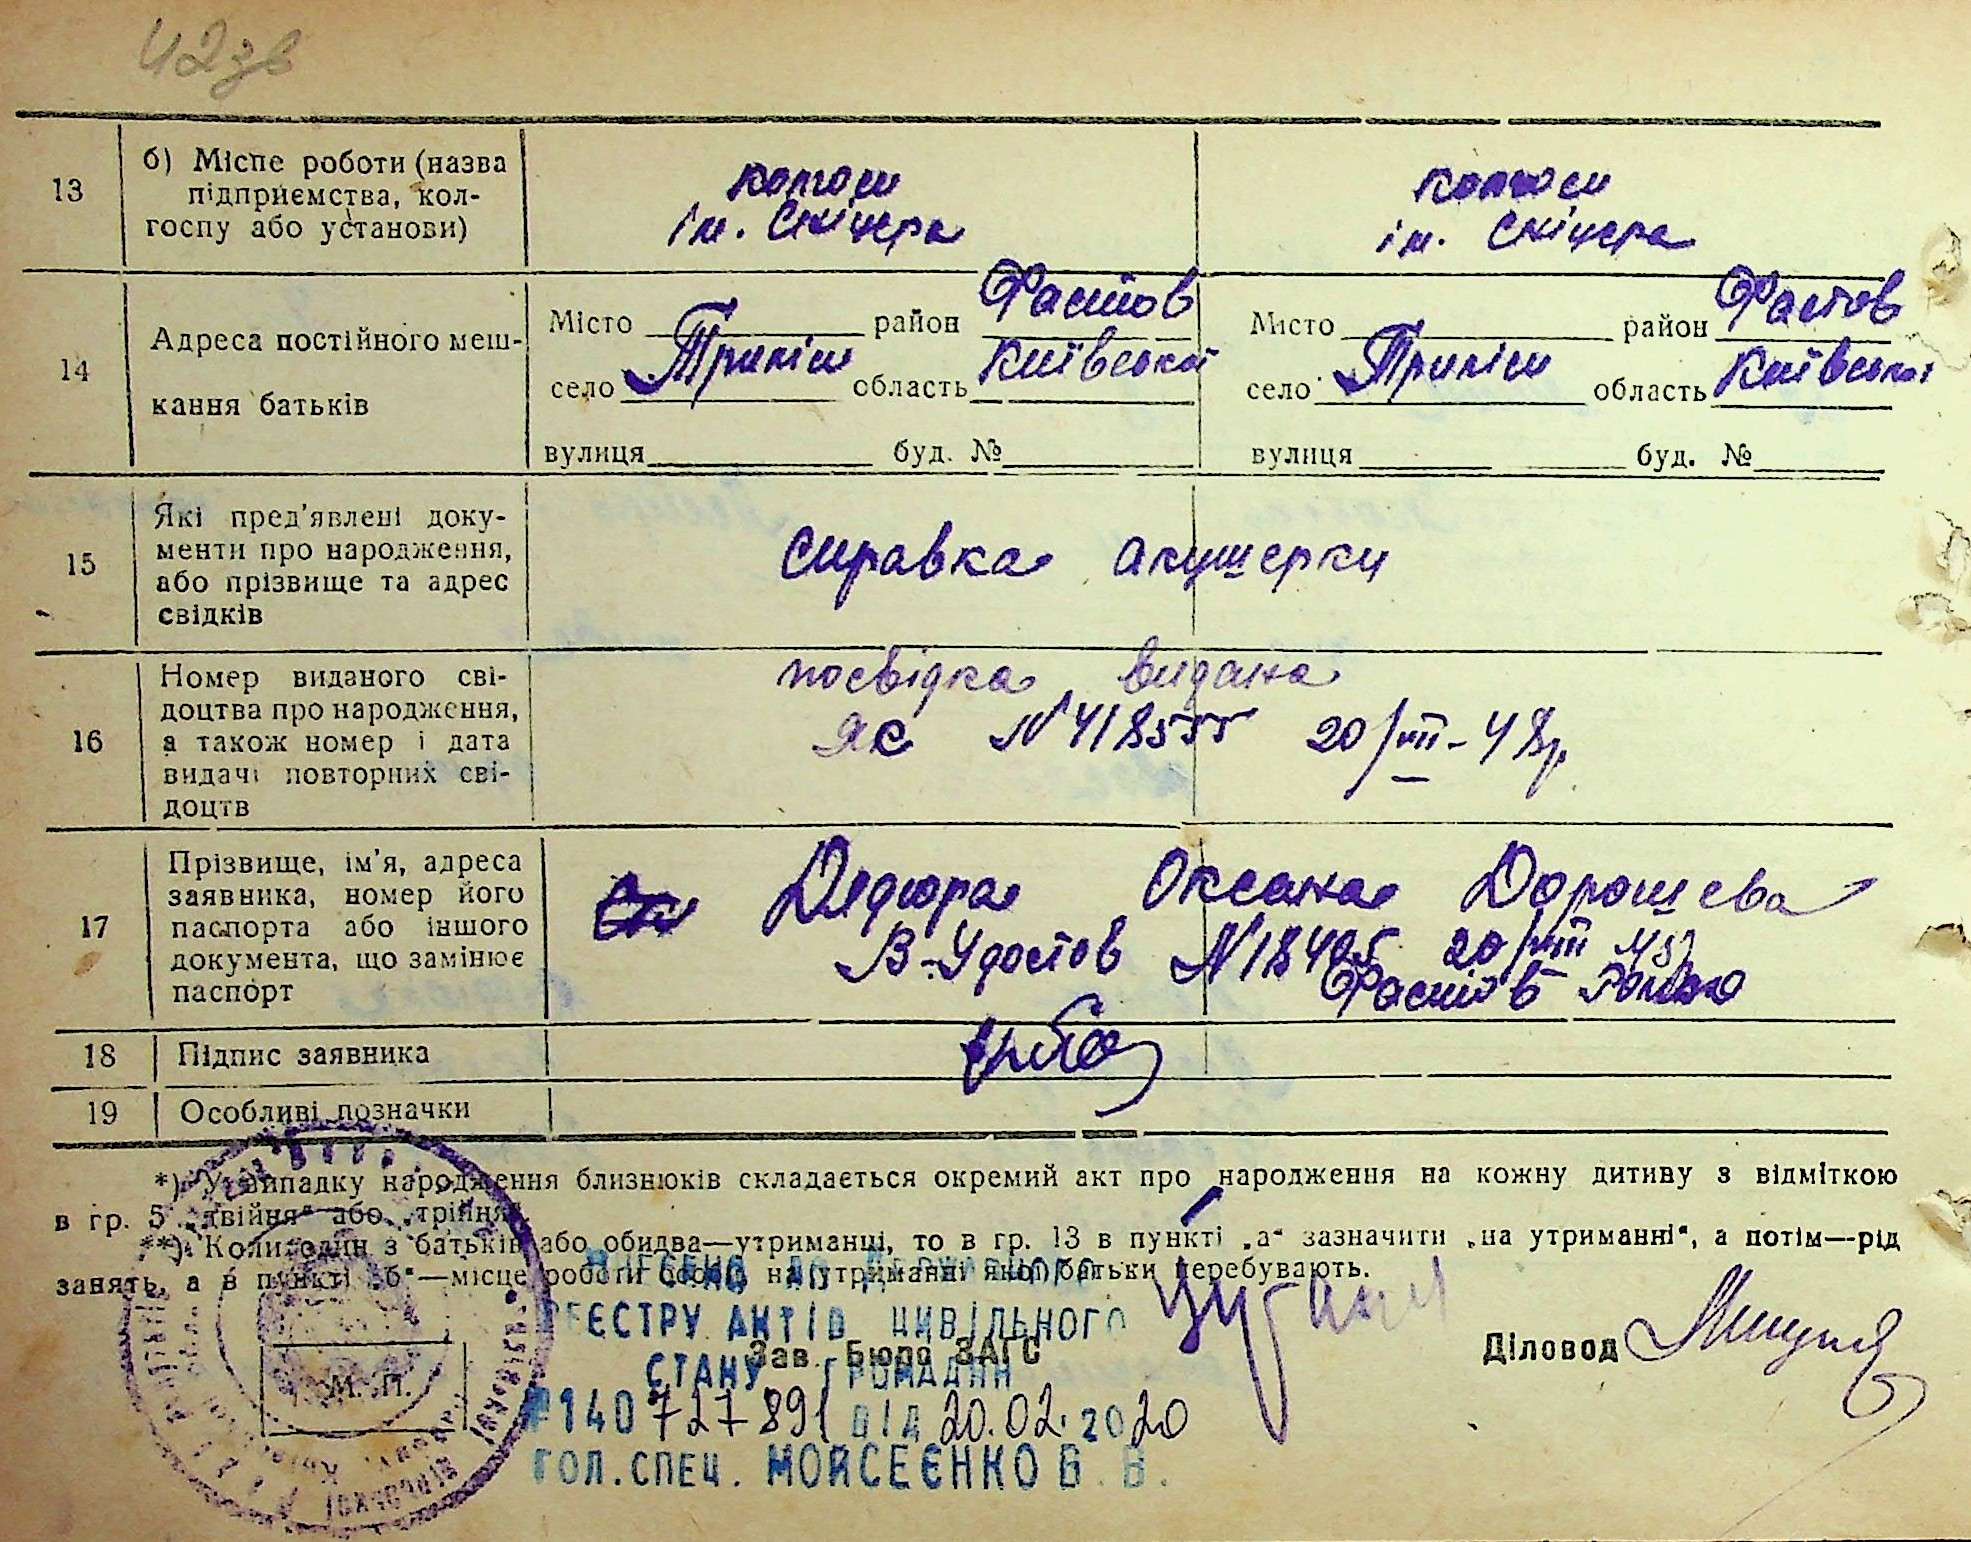 42зв
13
б) Місце роботи (назва
підприємства, кол-
госпу або установи)
колгосп
ім. Скіцера
колгосп
ім. Скіцера
14
Адреса постійного меш-
кання батьків
Місто район Фастов
село Триліси область Київської
вулиця буд. №
Місто район Фастов
село Триліси область Київської
вулиця буд. №
15
Які пред'явлені доку-
менти про народження,
або прізвище та адрес
свідків
справка акушерки
16
Номер виданого сві-
доцтва про народження,
а також номер і дата
видачі повторних сві-
доцтв
посвідка видана
ЯС N 418555 20/VII-48р.
17
Прізвище, ім'я, адреса
заявника, номер його
паспорта або іншого
документа, що замінює
паспорт
Дидюра Оксана Дорошева
В-Удостов N 18425 20/VIII
Фастов
18 Підпис заявника
19 Особливі позначки
*) У випадку народження близнюків складається окремий акт про народження на кожну дитину з відміткою
в гр. 5 „двійня“ або „трійня“.
**) Коли один з батьків або обидва—утриманці, то в гр. 13 в пункті „а“ зазначити „на утриманні“, а потім—рід
занять, а в пункті „б“—місце роботи особи, на утриманні якої батьки перебувають.
ВНЕСЕНО ДО ДЕРЖАВНОГО
РЕЄСТРУ АКТІВ ЦИВІЛЬНОГО
Зав. Бюро ЗАГС
СТАНУ ГРОМАДЯН
Діловод
М. П.
№ 140 727 891 ВІД 20.02.2020
ГОЛ.СПЕЦ. МОЙСЕЄНКО В. В.